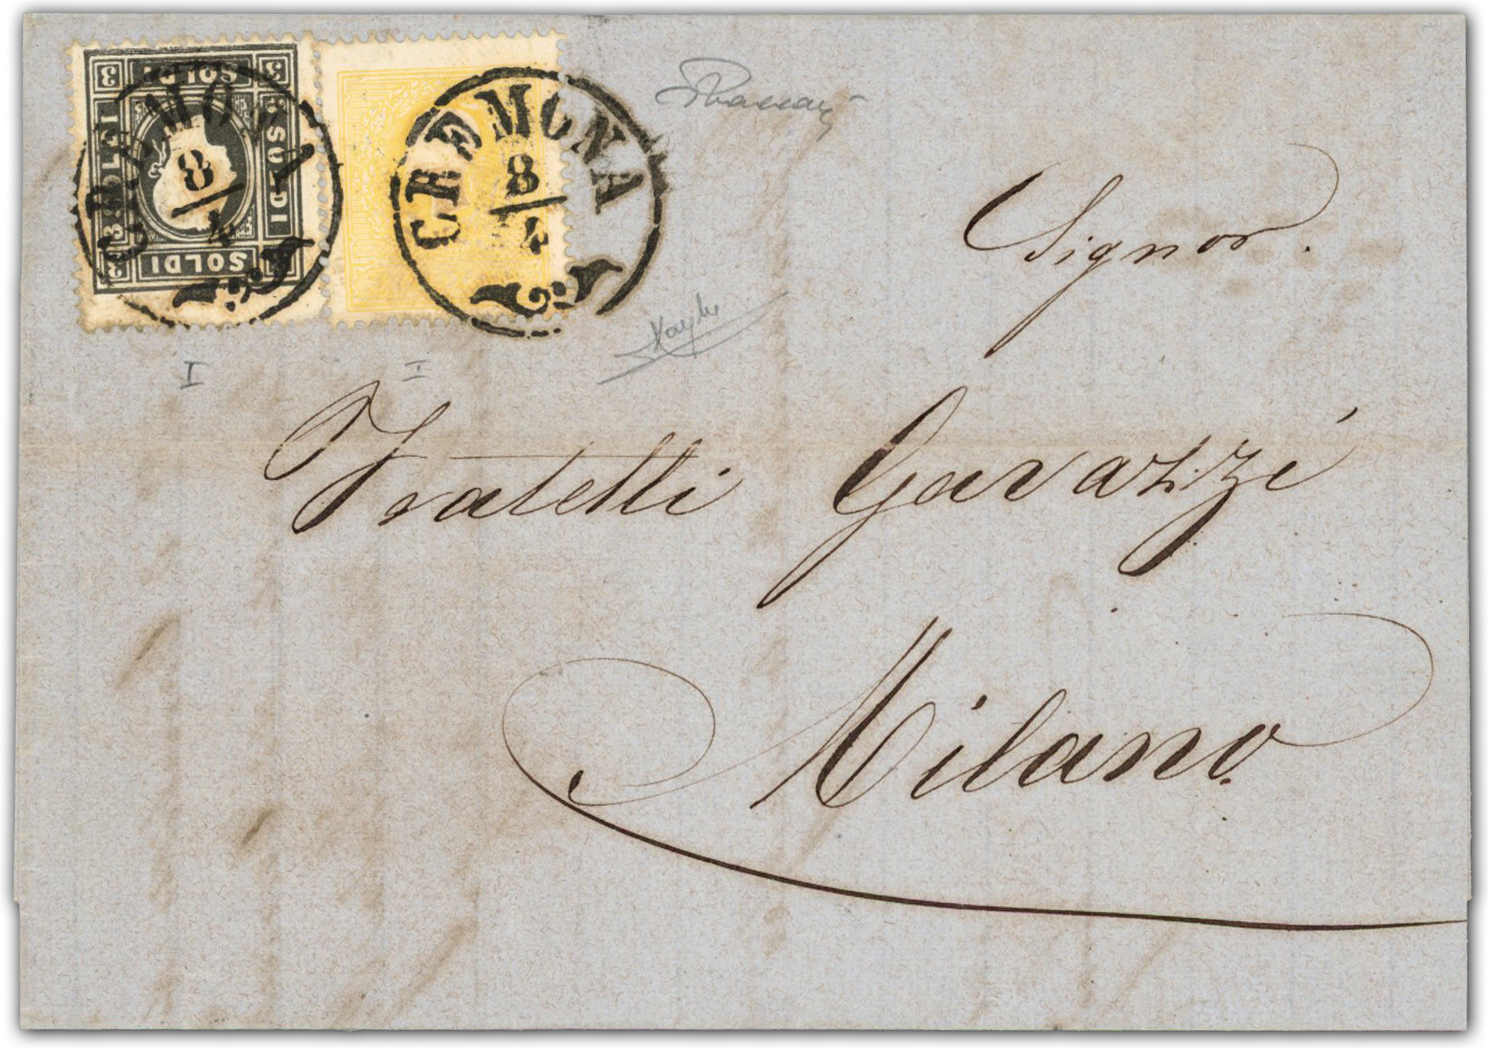 3 SOLDI 3
SOLDI
SOLDI
3 SOLDI 3
CREMONA
8/4
CREMONA
8/4
I
I
Signor.
Fratelli Gavazzi
Milano